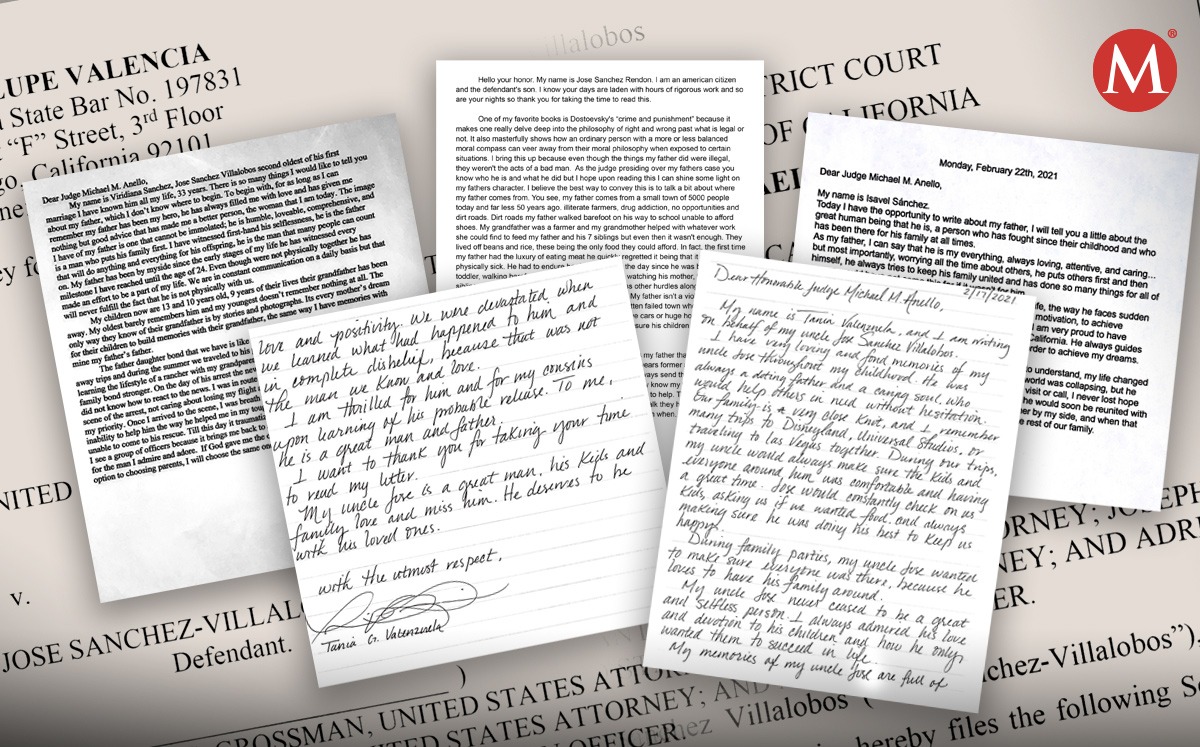 LUPE VALENCIA
State Bar No. 197831
“F” Street, 3rd Floor
California 92101
llalobos
TRICT COURT
OF CALIFORNIA
M
®
Dear Judge Michael M. Anello,
My name is Viridiana Sanchez, Jose Sanchez Villalobos second oldest of his first
marriage I have known him all my life, 33 years. There is so many things I would like to tell you
about my father, which I don't know where to begin. To begin with, for as long as I can
remember my father has been my hero, he has always filled me with love and has given me
nothing but good advice that has made me a better person, the woman that I am today. The image
I have of my father is one that cannot be immolated; he is humble, loveable, comprehensive, and
is a man who puts his family first. I have witnessed first-hand his selflessness, he is the father
that will do anything and everything for his offspring, he is the man that many people can count
on. My father has been by myside since the early stages of my life he has witnessed every
milestone I have reached until the age of 24. Even though were not physically together he has
made an effort to be a part of my life. We are in constant communication on a daily basis but that
will never fulfill the fact that he is not physically with us.
My children are now 13 and 10 years old, 9 years of their lives their grandfather has been
away. My oldest barely remembers him and my youngest doesn't remember nothing at all. The
only way they know of their grandfather is by stories and photographs. Its every mother's dream
for their children to build memories with their grandfather, the same way I have memories with
mine my father's father.
The father daughter bond that we have is like
away trips and during the summer we traveled to his
learning the lifestyle of a rancher with my grandpare
family bond stronger. On the day of his arrest the new
did not know how to react to the news. I was in route
scene of the arrest, not caring about losing my flight
my priority. Once I arrived to the scene, I was
inability to help him the way he helped me in my toug
unable to come to his rescue. Till this day it traumati
I see a group of officers because it brings me back to
for the man I admire and adore. If God gave me the
option to choosing parents, I will choose the same on
Hello your honor. My name is Jose Sanchez Rendon. I am an american citizen
and the defendant's son. I know your days are laden with hours of rigorous work and so
are your nights so thank you for taking the time to read this.
One of my favorite books is Dostoevsky's “crime and punishment” because it
makes one really delve deep into the philosophy of right and wrong past what is legal or
not. It also masterfully shows how an ordinary person with a more or less balanced
moral compass can veer away from their moral philosophy when exposed to certain
situations. I bring this up because even though the things my father did were illegal,
they weren't the acts of a bad man. As the judge presiding over my fathers case you
know who he is and what he did but I hope upon reading this I can shine some light on
my fathers character. I believe the best way to convey this is to talk a bit about where
my father comes from. You see, my father comes from a small town of 5000 people
today and far less 50 years ago. illiterate farmers, drug addiction, no opportunities and
dirt roads. Dirt roads my father walked barefoot on his way to school unable to afford
shoes. My grandfather was a farmer and my grandmother helped with whatever work
she could find to feed my father and his 7 siblings but even then it wasn't enough. They
lived of beans and rice, these being the only food they could afford. In fact, the first time
my father had the luxury of eating meat he quickly regretted it being that it
physically sick. He had to endure
the day since he was
toddler, walking
watching his mother,
other hurdles along
My father isn't a viol
ten failed town wh
e cars or huge ho
sure his children
my father that
ears former
ways send th
t know my
to help. T
alk they h
Monday, February 22th, 2021
Dear Judge Michael M. Anello,
My name is Isavel Sánchez.
Today I have the opportunity to write about my father, I will tell you a little about the
great human being that he is, a person who has fought since their childhood and who
has been there for his family at all times.
As my father, I can say that he is my everything, always loving, attentive, and caring...
but most importantly, worrying all the time about others, he puts others first and then
himself, he always tries to keep his family united and has done so many things for all of
ife, the way he faces sudden
motivation, to achieve
I am very proud to have
California. He always guides
order to achieve my dreams.
to understand, my life changed
world was collapsing, but he
visit or call, I never lost hope
he would soon be reunited with
er by my side, and when that
e rest of our family.
love and positivity. We were devastated when
we learned what had happened to him and
in complete disbelief, because that was not
the man we know and love.
I am thrilled for him and for my cousins
upon learning of his probable release. To me,
he is a great man and father.
I want to thank you for taking your time
to read my letter.
My uncle Jose is a great man, his kids and
family love and miss him. He deserves to be
with his loved ones.
with the utmost respect,
Tania G. Valenzuela
2/17/2021
Dear Honorable Judge Michael M. Anello,
My name is Tania Valenzuela, and I am writing
on behalf of my uncle Jose Sanchez Villalobos.
I have very loving and fond memories of my
uncle Jose throughout my childhood. He was
always a doting father and a caring soul, who
would help others in need without hesitation.
Our family is a very close knit, and I remember
many trips to Disneyland, Universal Studios, or
traveling to Las Vegas together. During our trips,
my uncle would always make sure the kids and
everyone around him was comfortable and having
a great time. Jose would constantly check on us
kids, asking us if we wanted food, and always
making sure he was doing his best to keep us
happy.
During family parties, my uncle Jose wanted
to make sure everyone was there, because he
loves to have his family around.
My uncle Jose never ceased to be a great
and selfless person. I always admired his love
and devotion to his children and how he only
wanted them to succeed in life.
My memories of my uncle Jose are full of
UNITED
v.
JOSE SANCHEZ-VILLAL
Defendant.
)
ORNEY; JOSEPH
NEY; AND ADRI
ER.
chez-Villalobos”),
GROSSMAN, UNITED STATES ATTOR
STATES ATTORNEY; AND
N OFFICER
ez Villalobos (
hereby files the following Se